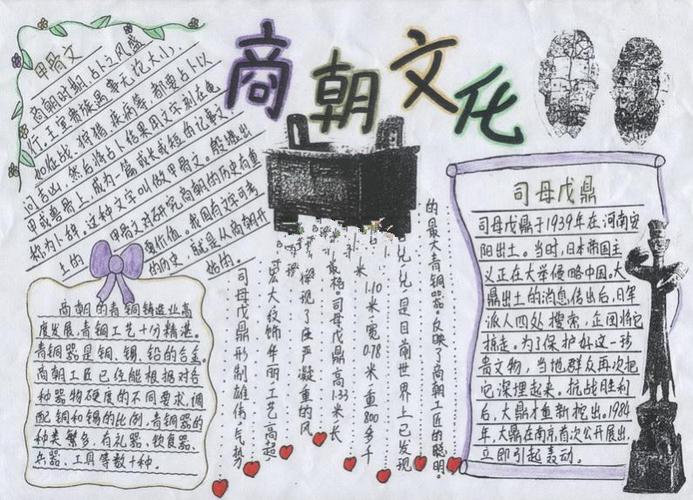 商朝文化
甲骨文
商朝时期,占卜之风盛
行,王室贵族遇事无论大小,
如征战、狩猎、疾病等,都要占卜以
问吉凶,然后将占卜结果用文字刻在龟
甲或兽骨上,成为一篇或长或短的记事文。
称为卜辞,这种文字叫做甲骨文。殷墟出
土的甲骨文对研究商朝的历史有重
要价值。我国有文字可考
的历史,就是从商朝开
始的。
商朝的青铜铸造业高
度发展,青铜工艺十分精湛。
青铜器是铜、锡、铅的合金。
商朝工匠已经能根据对各
种器物硬度的不同要求,调
配铜和锡的比例,青铜器的
种类繁多,有礼器、饮食器、
乐器、工具等数十种。
司母戊鼎形制雄伟,气势
宏大纹饰华丽,工艺高超,
体现了庄严凝重的风
格司母戊鼎高1.33米长
1.10米宽0.78米重800多千
是目前世界上已发现
的最大青铜器。反映了商朝工匠的聪明。
司母戊鼎
司母戊鼎于1939年在河南安
阳出土。当时,日本帝国主
义正在大举侵略中国。大
鼎出土的消息传出后,日军
派人四处搜索,企图将它
搞走。为了保护好这一珍
贵文物,当地群众再次把
它深埋起来。抗战胜利
后,大鼎才重新挖出,1984
年,大鼎在南京首次公开展出,
立即引起轰动。